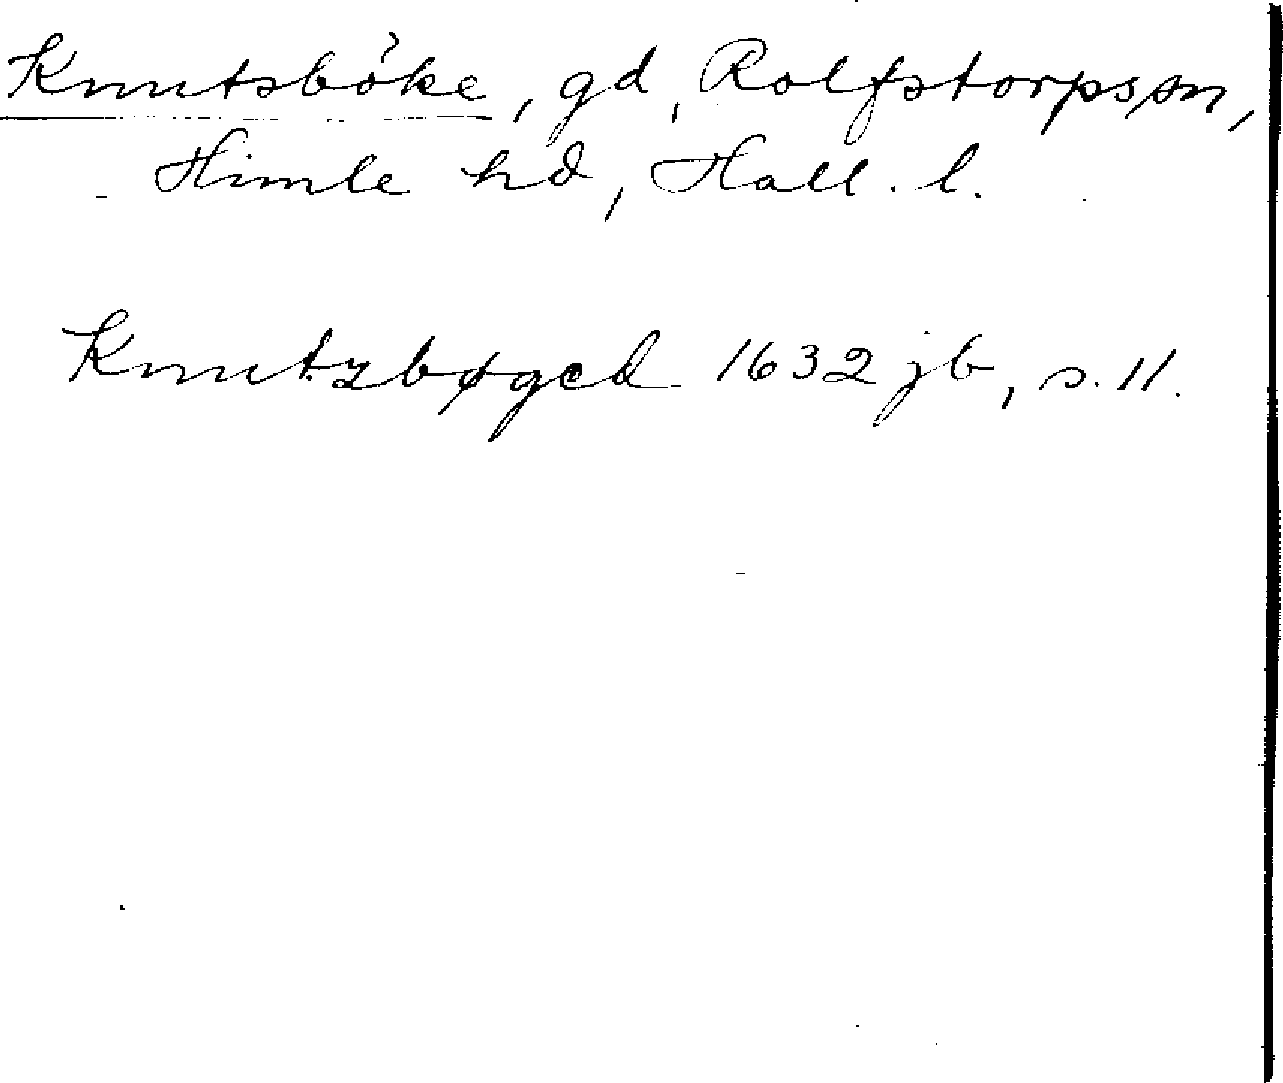 Knutsböke, gd, Rolfstorps sn,
Himle hd, Hall. l.
Knutzbøged 1632 jb, s. 11.